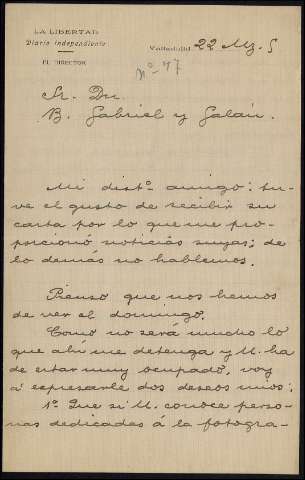 LA LIBERTAD
Diario independiente
EL DIRECTOR
Valladolid 22 Mz. 5
nº 77
Sr. Dn.
B. Gabriel y Galán.
Mi distº amigo: tu-
ve el gusto de recibir su
carta por lo que me pro-
porcionó noticias suyas; de
lo demás no hablemos.
Pienso que nos hemos
de ver el domingo.
Como no será mucho lo
que ahi me detenga y V. ha
de estar muy ocupado, voy
á expresarle dos deseos mios:
1º Que si V. conoce perso-
nas dedicadas á la fotogra-